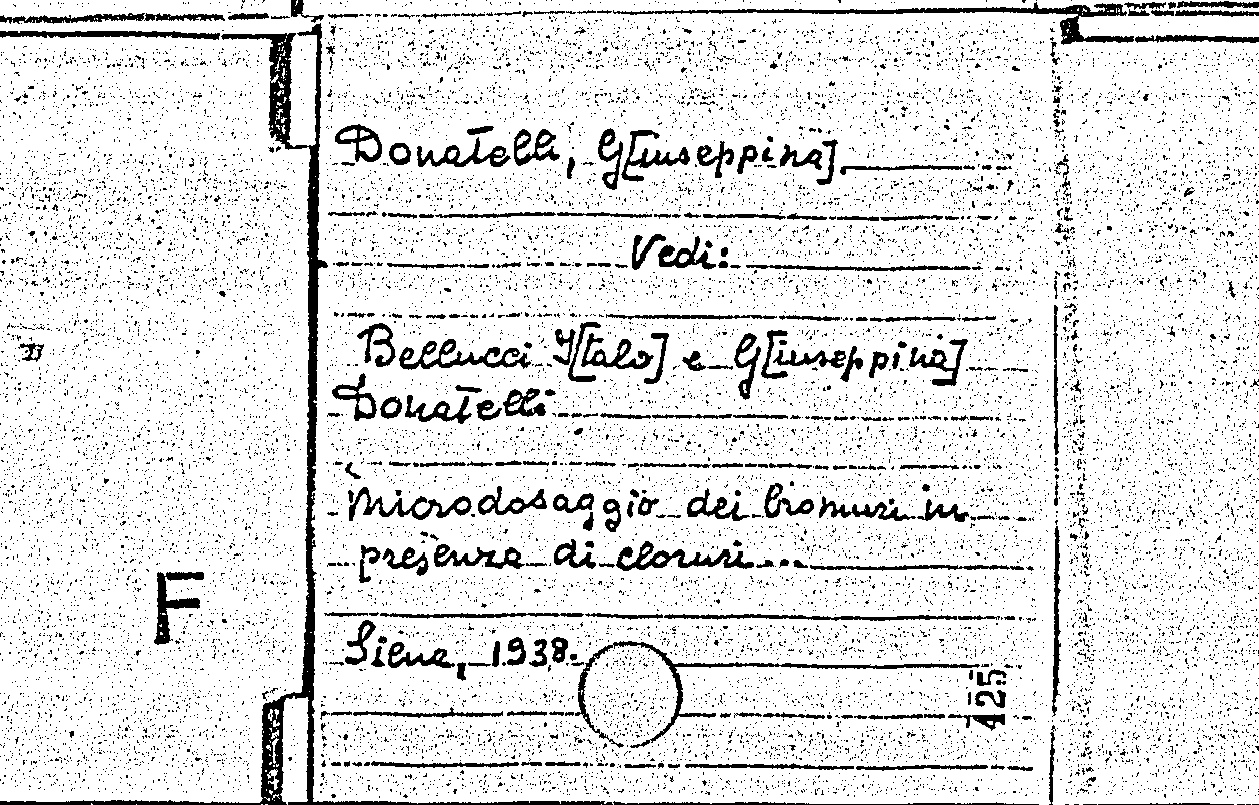 Donatelli, G[iuseppina]
Vedi:
Bellucci I[talo] e G[iuseppina]
Donatelli
Microdosaggio dei bromuri in
presenza di cloruri...
Siena, 1938.
425
F